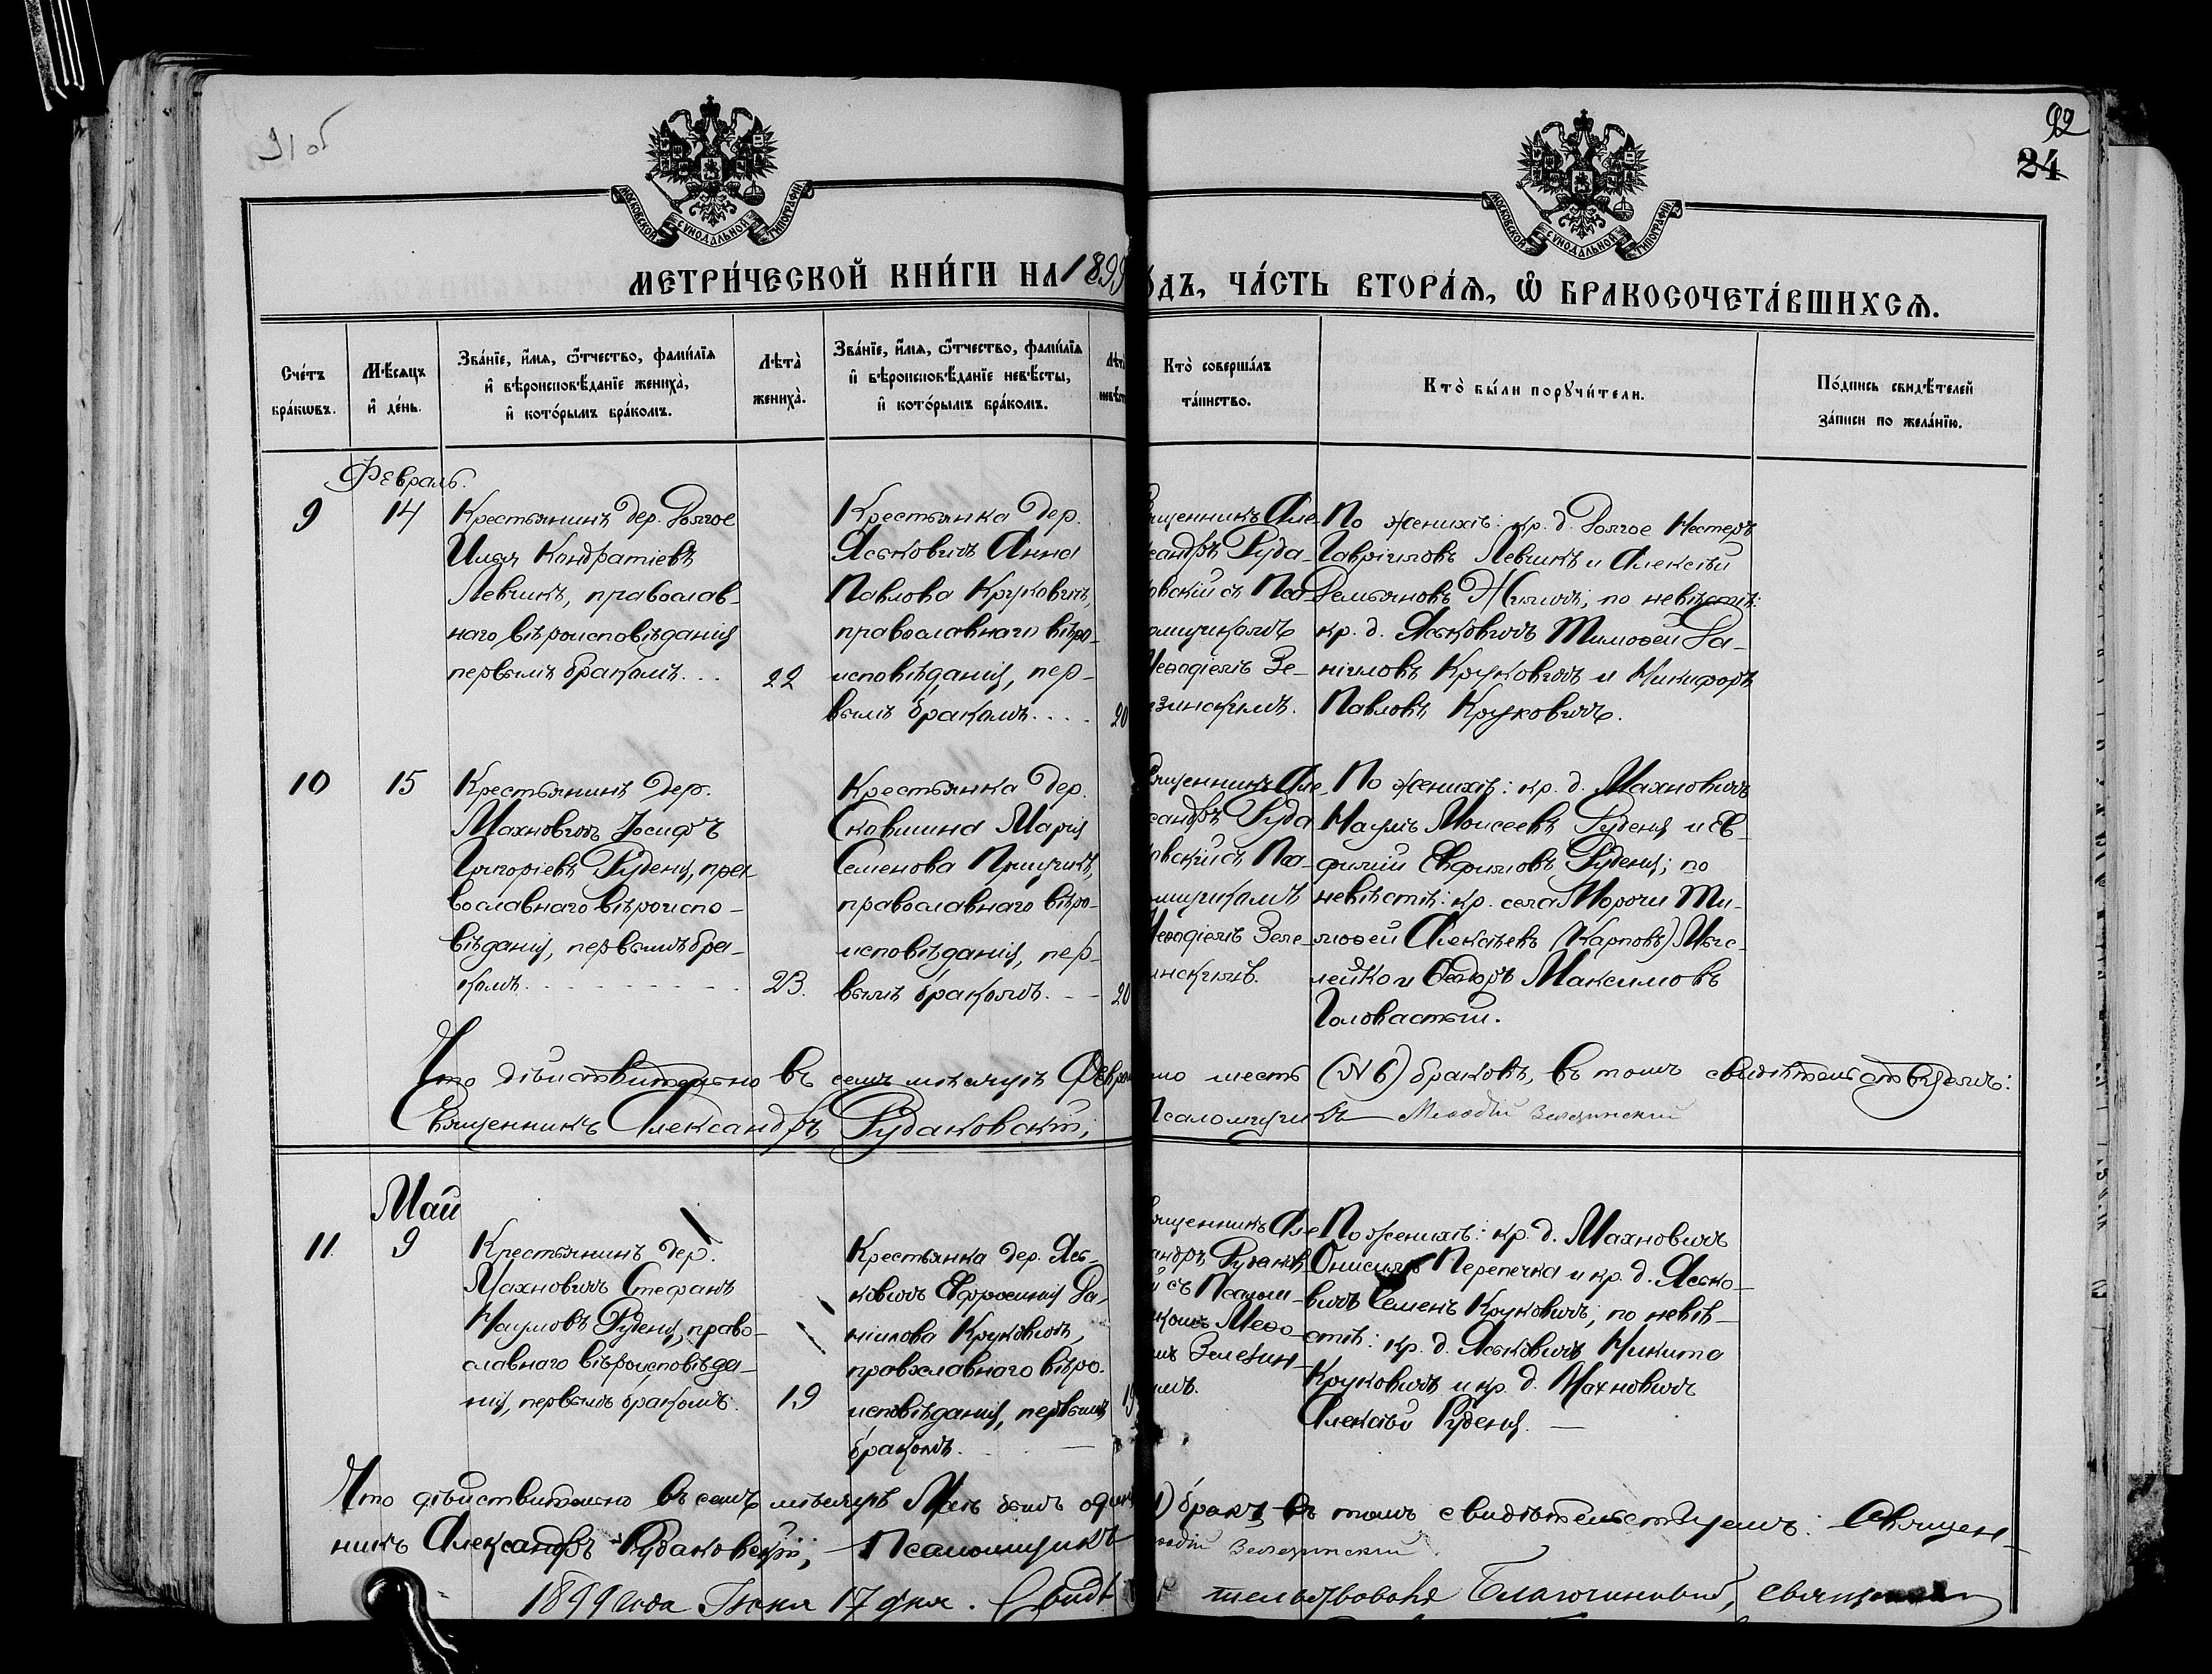 91об
92
24
МОСКОВСКОЙ СѴНОДАЛЬНОЙ ТИПОГРАФІИ
МОСКОВСКОЙ СѴНОДАЛЬНОЙ ТИПОГРАФІИ
МЕТРИ́ЧЕСКОЙ КНИ́ГИ НА 1899
О́ДЪ, ЧА́СТЬ ВТОРА́Ѧ, Ѡ҆ БРАКОСОЧЕТА́ВШИХСѦ.
Сче́тъ
бра́кѡвъ.
Мѣ́сяцъ
и҆ де́нь.
Зва́нїе, и҆́мѧ, ѻ҆́тчество, фамі́лїѧ
и҆ вѣроисповѣ́данїе жениха̀,
и҆ кото́рымъ бра́комъ.
Лѣта̀
жениха̀.
Зва́нїе, и҆́мѧ, ѻ҆́тчество, фамі́лїѧ
и҆ вѣроисповѣ́данїе невѣ́сты,
и҆ кото́рымъ бра́комъ.
Лѣта̀
невѣс
Кто̀ соверша́лъ
та́инство.
Кто̀ бы́ли порꙋчи́тели.
По́дпись свидѣ́телей
за́писи по жела́нїю.
Февраль.
9
14
Крестьянинъ дер. Долгое
Илья Кондратіевъ
Левчикъ, православ-
наго вѣроисповѣданія
первымъ бракомъ. . .
22
Крестьянка дер.
Яськовичъ Анна
Павлова Круковичъ,
православнаго вѣро-
исповѣданія, пер-
вымъ бракомъ. . . .
20
вященникъ Але-
сандръ Руда-
овскій съ Пса-
омщикомъ
Меѳодіемъ Зе-
зинскимъ.
По женихѣ: кр. д. Долгое Нестеръ
Гавріиловъ Левчикъ и Алексѣй
Демьяновъ Жиличъ; по невѣстѣ:
кр. д. Яськовичъ Тимоѳей Да-
ніиловъ Круковичъ и Никифоръ
Павловъ Круковичъ.
10
15
Крестьянинъ дер.
Махновичъ Іосифъ
Григоріевъ Руденя, пра-
вославнаго вѣроиспо-
вѣданія, первымъ бра-
комъ. . . . . . . . .
23.
Крестьянка дер.
Сковшина Марія
Семенова Прищикъ,
православнаго вѣро-
исповѣданія, пер-
вымъ бракомъ. - -
20
вященникъ Але-
сандръ Руда
овскій съ Пса-
омщикомъ
Меѳодіемъ Зеле-
инскимъ.
По женихѣ: кр. д. Махновичъ
Наумъ Моисеевъ Руденя и Ев-
фимій Евфимовъ Руденя; по
невѣстѣ: кр. села Морочи Ти-
моѳей Алексѣевъ (Карповъ)
лейко и Ѳедоръ Максимовъ
Головастый.
Что дѣйствительно въ семъ мѣсяцѣ Февра
ло шесть (№ 6) браковъ, въ томъ свидѣтельствуемъ:
Священникъ Александръ Рудаковскій;
Псаломщикъ Меѳодій Зелезинскій
Май
11.
9
Крестьянинъ дер.
Махновичъ Стефанъ
Наумовъ Руденя, право-
славнаго вѣроисповѣда-
нія, первымъ бракомъ.
19
Крестьянка дер. Ясь-
ковичъ Ефросинія Да-
ніилова Круковичъ,
православнаго вѣро-
исповѣданія, первымъ
бракомъ.
19
вященникъ Але
андръ Рудаков-
й съ Псалом-
икомъ Меѳо-
мъ Зелезин-
имъ.
По женихѣ: кр. д. Махновичъ
Онисимъ Перепечка и кр. д. Ясько-
вичъ Семенъ Круковичъ; по невѣ-
стѣ: кр. д. Яськовичъ Никита
Круковичъ и кр. д. Махновичъ
Алексѣй Руденя. —
Что дѣйствительно въ семъ мѣсяцѣ Маѣ былъ одинъ
1) бракъ въ томъ свидѣтельствуемъ: Священ-
никъ Александръ Рудаковскій, — Псаломщикъ
одій Зелезинскій
1899 года Іюня 17 дня. Свидѣ
тельствовалъ Благочинный, священникъ